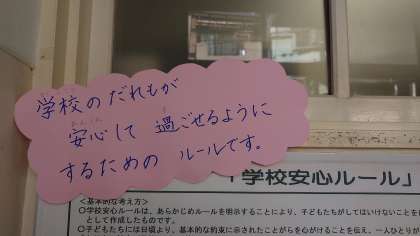 学校のだれもが
安心して過ごせるように
するための ルールです。
「学校安心ルール」
<基本的な考え方>
○学校安心ルールは、あらかじめルールを明示することにより、子どもたちがしてはいけないことを
として作成したものです。
○子どもたちには日頃より、基本的な約束に示されたことがらを心がけることを伝え、一人ひとりが